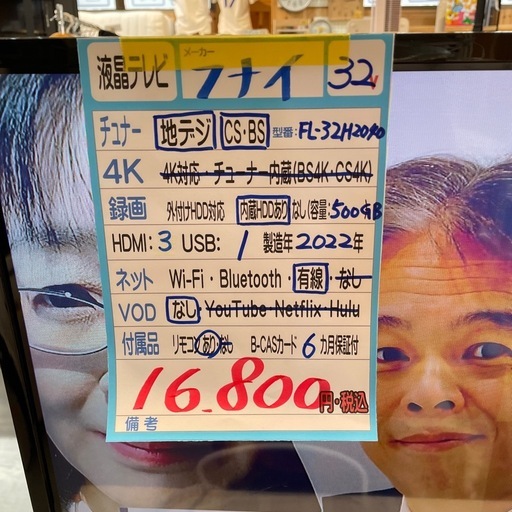 液晶テレビ メーカー フナイ 32v
チュナー 地デジ CS・BS 型番: FL-32H2040
4K 4K対応・チューナー内蔵(BS4K・CS4K)
録画 外付けHDD対応 内蔵HDDあり なし(容量:500GB
HDMI: 3 USB: 1 製造年2022年
ネット Wi-Fi・Bluetooth・有線・なし
VOD なし・YouTube Netflix Hulu
付属品 リモコン あり なし B-CASカード 6カ月保証付
16.800円・税込
備考